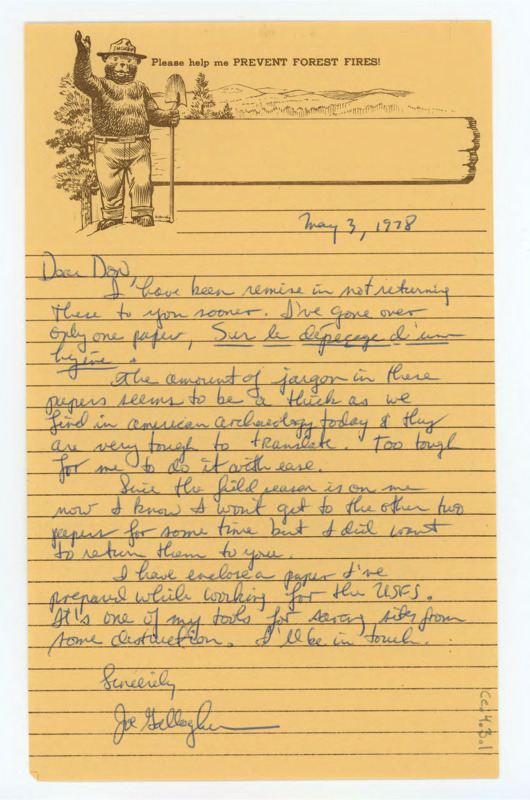 SMOKEY
Please help me PREVENT FOREST FIRES!
May 3, 1978
Dear Don,
I have been remise in not returning
these to you sooner. I've gone over
only one paper, Sur le dépeçage d'un
The amount of jargon in these
papers seems to be a thick as we
find in american archaeology today & they
are very tough to translate. Too tough
for me to do it with ease.
Since the field season is on me
now I know I won't get to the other two
papers for some time but I did want
to return them to you.
I have enclose a paper I've
prepared while working for the USFS.
It's one of my tools for saving sites from
some destruction. I'll be in touch.
Sincerely
Joe Gallagher
Ce.4.3.1